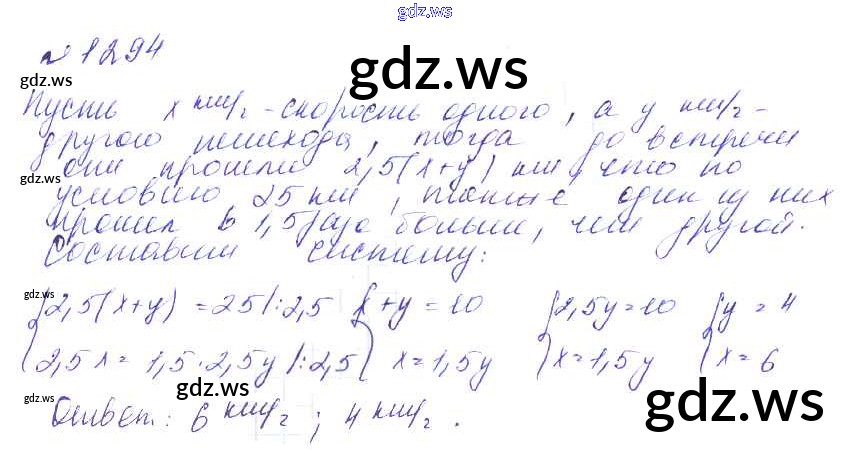 gdz.ws
№ 1294
gdz.ws
gdz.ws
Пусть x км/г - скорость одного, а y км/г -
другого пешехода, тогда до встречи
они прошли 2,5(x+y) км, что по
gdz.ws
условию 25 км, также один из них
прошел в 1,5 раза больше, чем другой.
Составим систему:
gdz.ws
{2,5(x+y) = 25 |:2,5 {x+y = 10 {2,5y=10 {y = 4
2,5x = 1,5·2,5y |:2,5 x=1,5y x=1,5y x=6
gdz.ws
gdz.ws
gdz.ws
Ответ: 6 км/г ; 4 км/г .